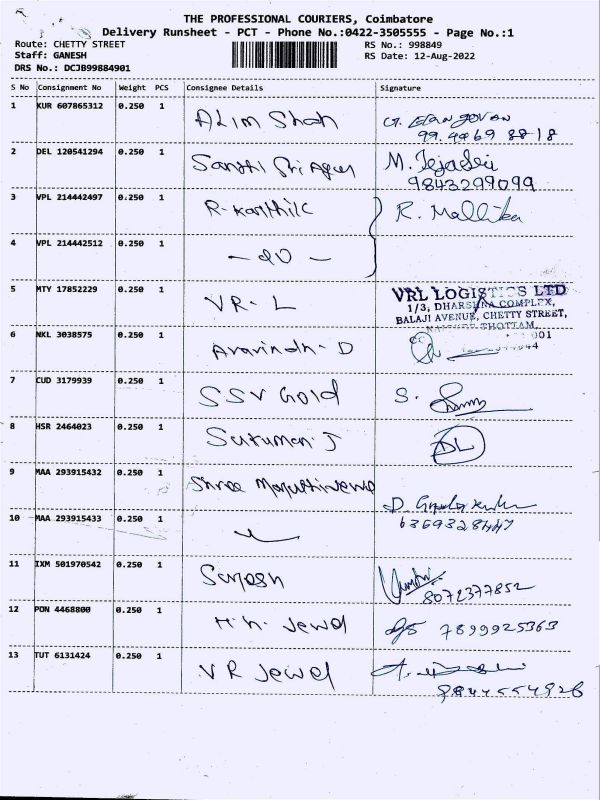 THE PROFESSIONAL COURIERS, Coimbatore
Delivery Runsheet - PCT - Phone No.:0422-3505555 - Page No.:1
Route: CHETTY STREET
RS No.: 998849
Staff: GANESH
RS Date: 12-Aug-2022
DRS No.: DCJB99884901
S No Consignment No Weight PCS Consignee Details Signature
1 KUR 607865312 0.250 1 Alim Shah
2 DEL 120541294 0.250 1 Santhi M. Tejasri
9843299099
3 VPL 214442497 0.250 1 R. Mallika
4 VPL 214442512 0.250 1
5 MTY 17852229 0.250 1 VR-L
VRL LOGISTICS LTD
1/3, DHARSHNA COMPLEX,
BALAJI AVENUE, CHETTY STREET,
THOTTAM,
6 NKL 3038575 0.250 1 Aravindh-D
7 CUD 3179939 0.250 1 SSV Gold S.
8 HSR 2464023 0.250 1 DL
9 MAA 293915432 0.250 1 Shree
10 MAA 293915433 0.250 1
11 IXM 501970542 0.250 1
8072377852
12 PON 4468800 0.250 1 H.h. Jewel 7899925363
13 TUT 6131424 0.250 1 VR Jewel